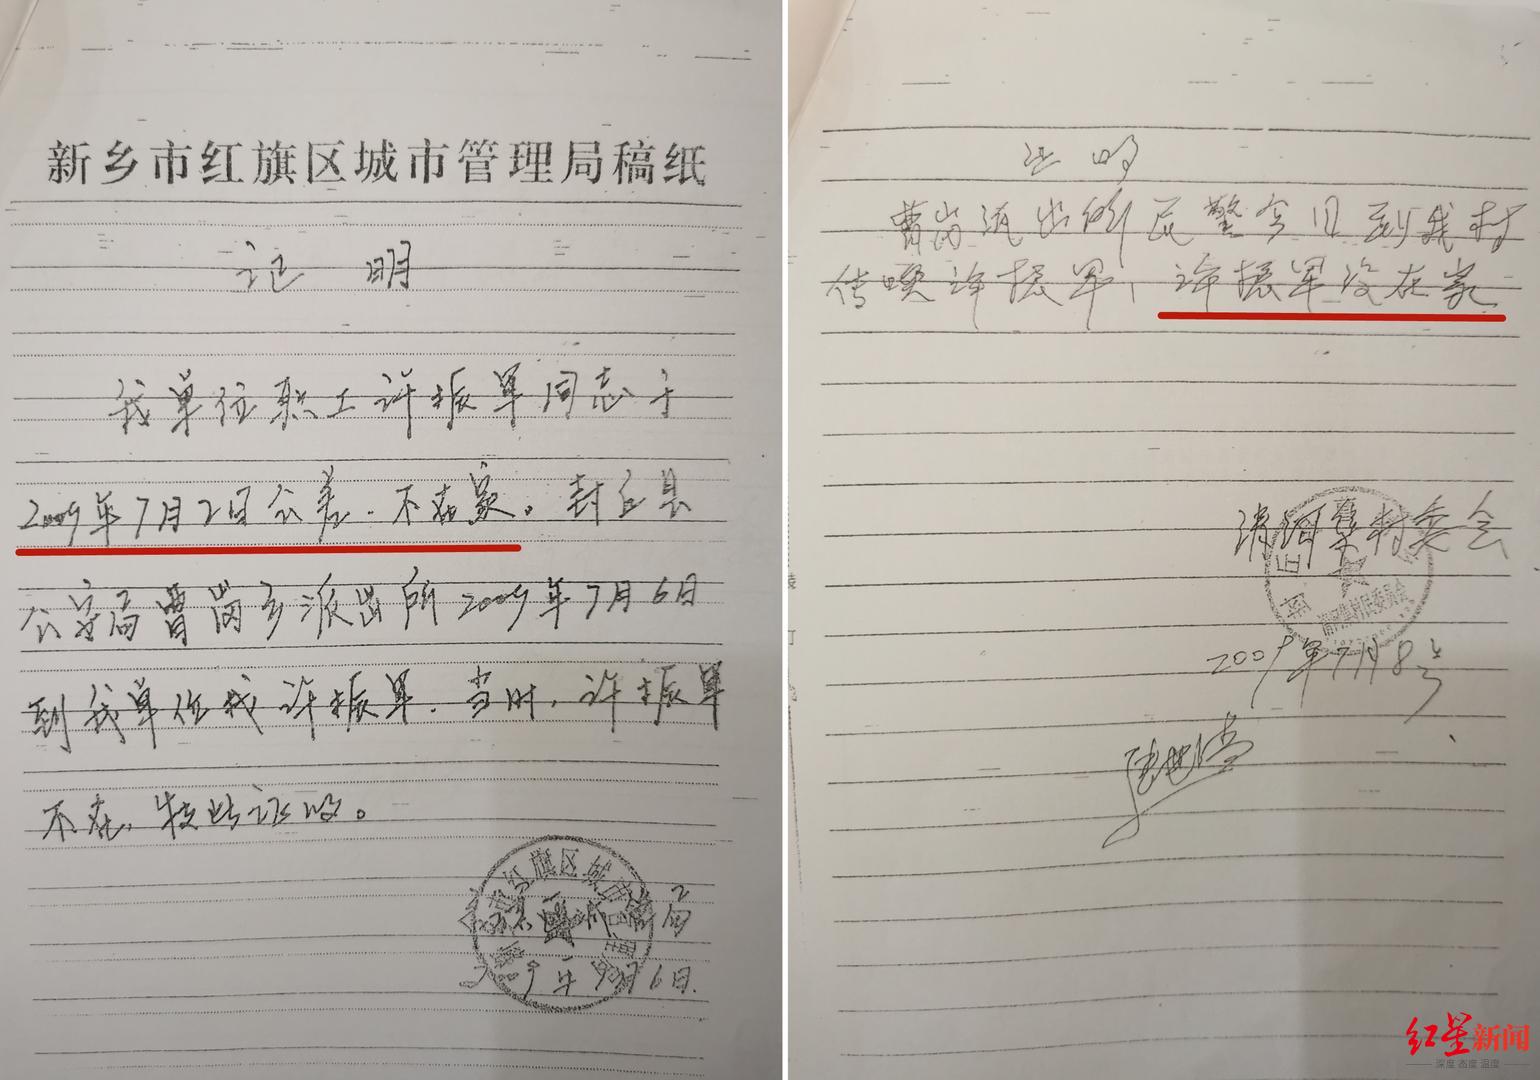 新乡市红旗区城市管理局稿纸
证 明
我单位职工许振军同志于
2009年7月2日公差.不在家。封丘县
公安局曹岗乡派出所2009年7月6日
到我单位找许振军.当时,许振军
不在,特此证明。
2009年7月6日.
证 明
曹岗派出所民警今日到我村
传唤许振军,许振军没在家
清河集村委会
2009年7月8号
红星新闻
深度 态度 温度